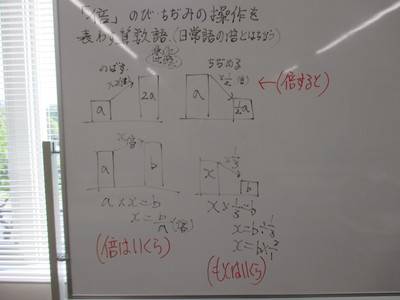 「倍」のび・ちぢみの操作を
表わす算数語.(日常語の倍とはちがう)
のばす
ちぢめる
a
2a
a
1/2a
←(倍すると)
x倍
a
b
x
b
a×x=b
x=b/a(倍)
x×1/3=b
x=b÷1/3
x=b×3/1
(倍はいくら)
(もとはいくら)